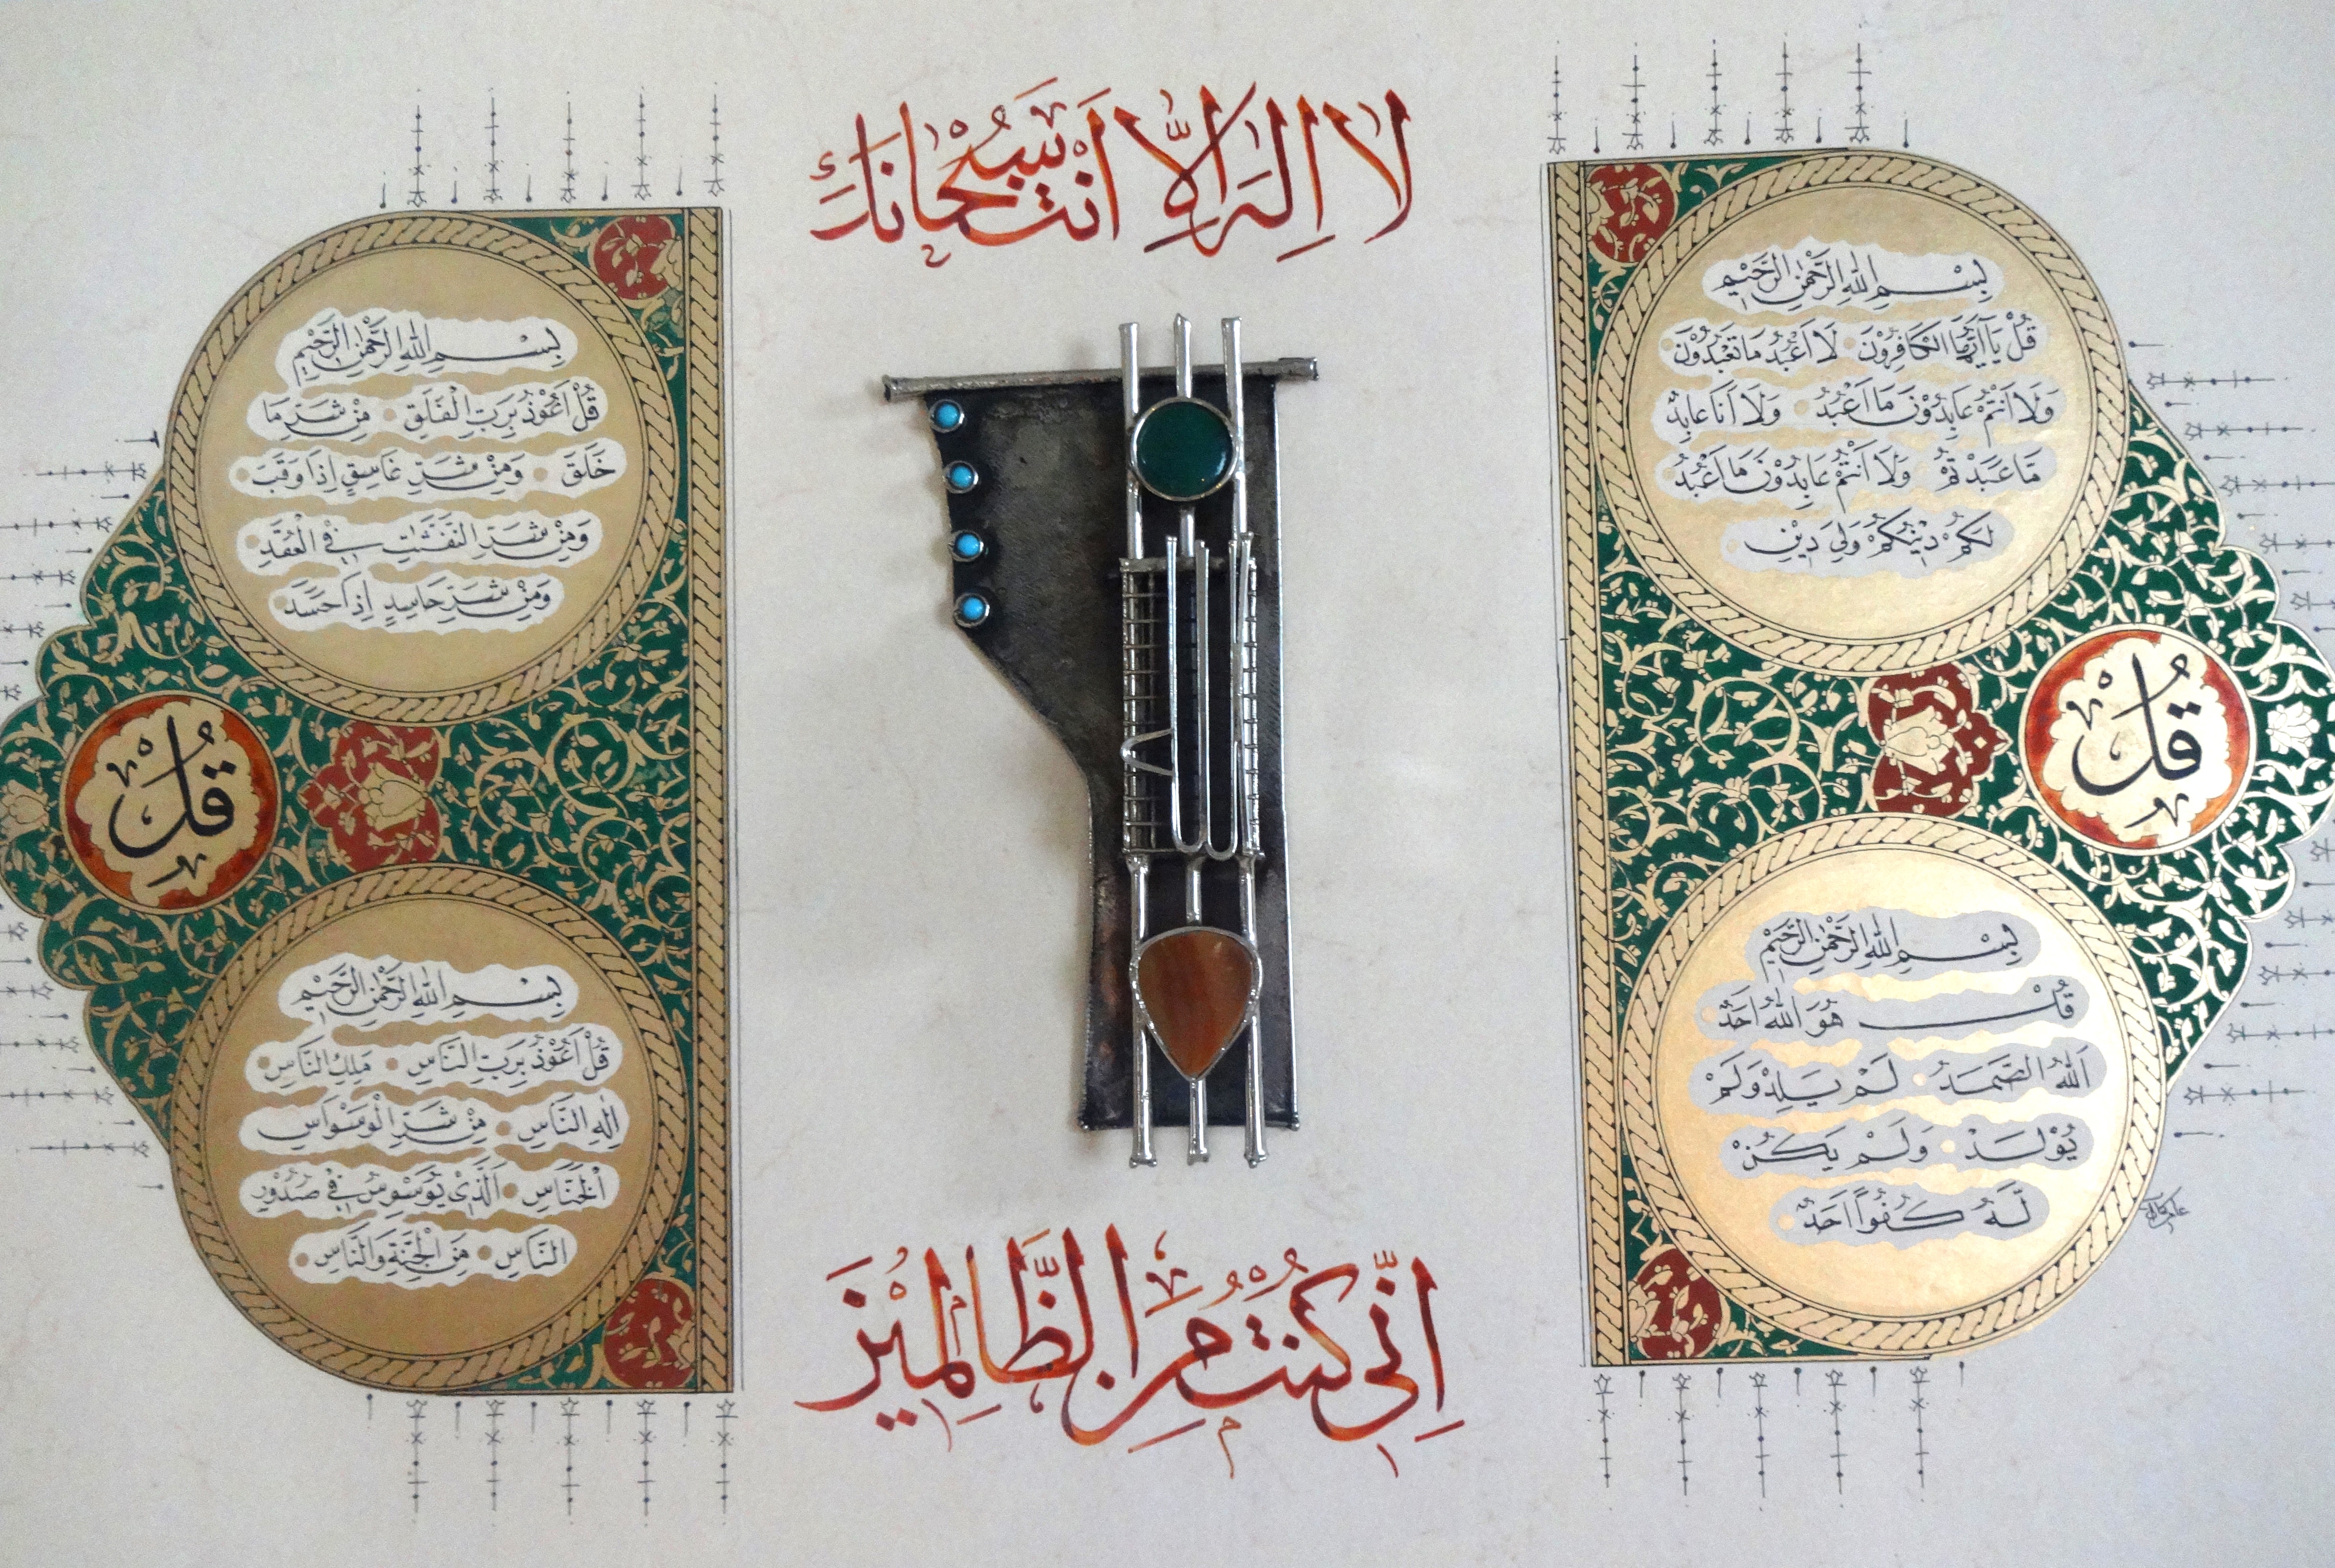 لا اله الا انت سبحانك
بسم الله الرحمن الرحيم
قل يا أيها الكافرون لا اعبد ما تعبدون
ولا انتم عابدون ما اعبد ولا انا عابد
ما عبدتم ولا انتم عابدون ما اعبد
لكم دينكم ولي دين
قل
بسم الله الرحمن الرحيم
قل هو الله احد
الله الصمد لم يلد ولم
يولد ولم يكن
له كفوا احد
بسم الله الرحمن الرحيم
قل اعوذ برب الفلق من شر ما
خلق ومن شر غاسق اذا وقب
ومن شر النفثت في العقد
ومن شر حاسد اذا حسد
قل
بسم الله الرحمن الرحيم
قل اعوذ برب الناس ملك الناس
اله الناس من شر الوسواس
الخناس الذي يوسوس في صدور
الناس من الجنة والناس
اني كنت من الظالمين